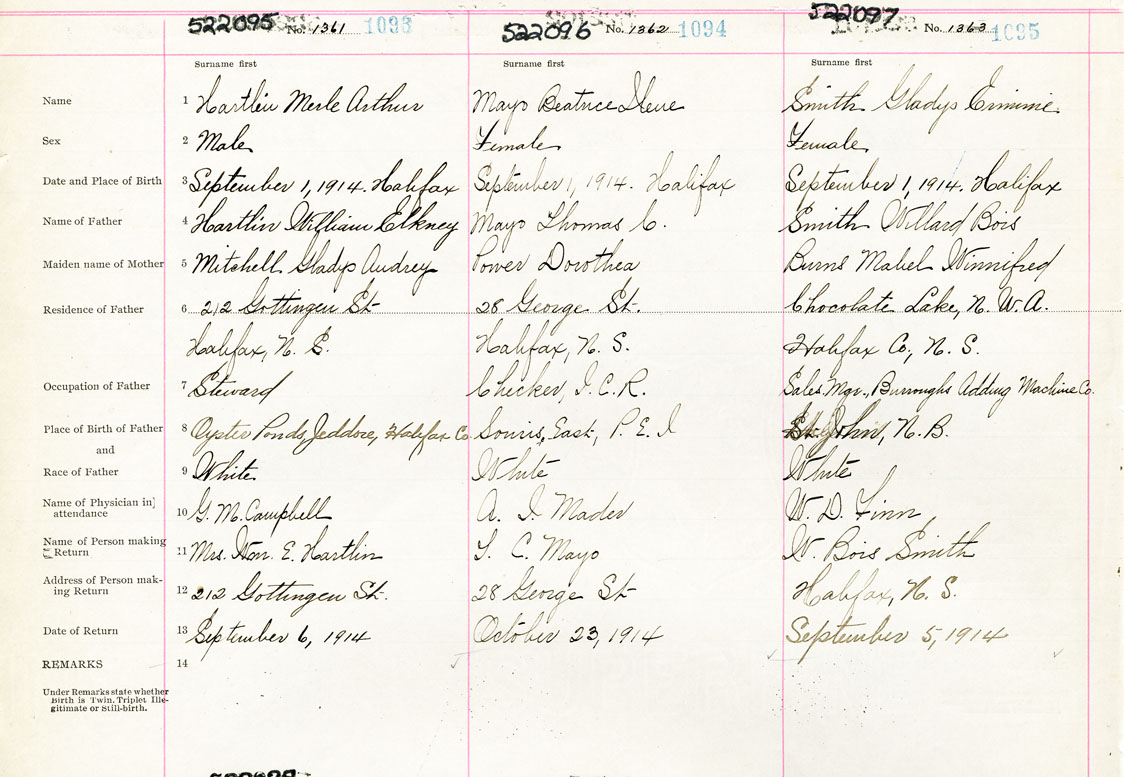 522095 No. 1361 1093 522096 No. 1362 1094 522097 No. 1363 1095
Surname first Surname first Surname first
Name 1 Hartlin Merle Arthur Mayo Beatrice Ilene Smith Gladys Erminie
Sex 2 Male Female Female
Date and Place of Birth 3 September 1, 1914. Halifax September 1, 1914. Halifax September 1, 1914. Halifax
Name of Father 4 Hartlin William Elkney Mayo Thomas C. Smith Willard Bois
Maiden name of Mother 5 Mitchell Gladys Audrey Power Dorothea Burns Mabel Winnifred
Residence of Father 6 212 Gottingen St 28 George St. Chocolate Lake, N. W. A.
Halifax, N. S. Halifax, N. S. Halifax Co., N. S.
Occupation of Father 7 Steward Checker, I. C. R. Sales Mgr., Burroughs Adding Machine Co.
Place of Birth of Father 8 Oyster Ponds, Jeddore, Halifax Co. Souris, East, P. E. I St. John, N. B.
and
Race of Father 9 White White White
Name of Physician in
attendance 10 G. M. Campbell A. I. Mader W. D. Finn
Name of Person making
Return 11 Mrs. Wm. E. Hartlin T. C. Mayo W. Bois Smith
Address of Person mak-
ing Return 12 212 Gottingen St. 28 George St Halifax, N. S.
Date of Return 13 September 6, 1914 October 23, 1914 September 5, 1914
REMARKS 14
Under Remarks state whether
Birth is Twin, Triplet Ille-
gitimate or Still-birth.